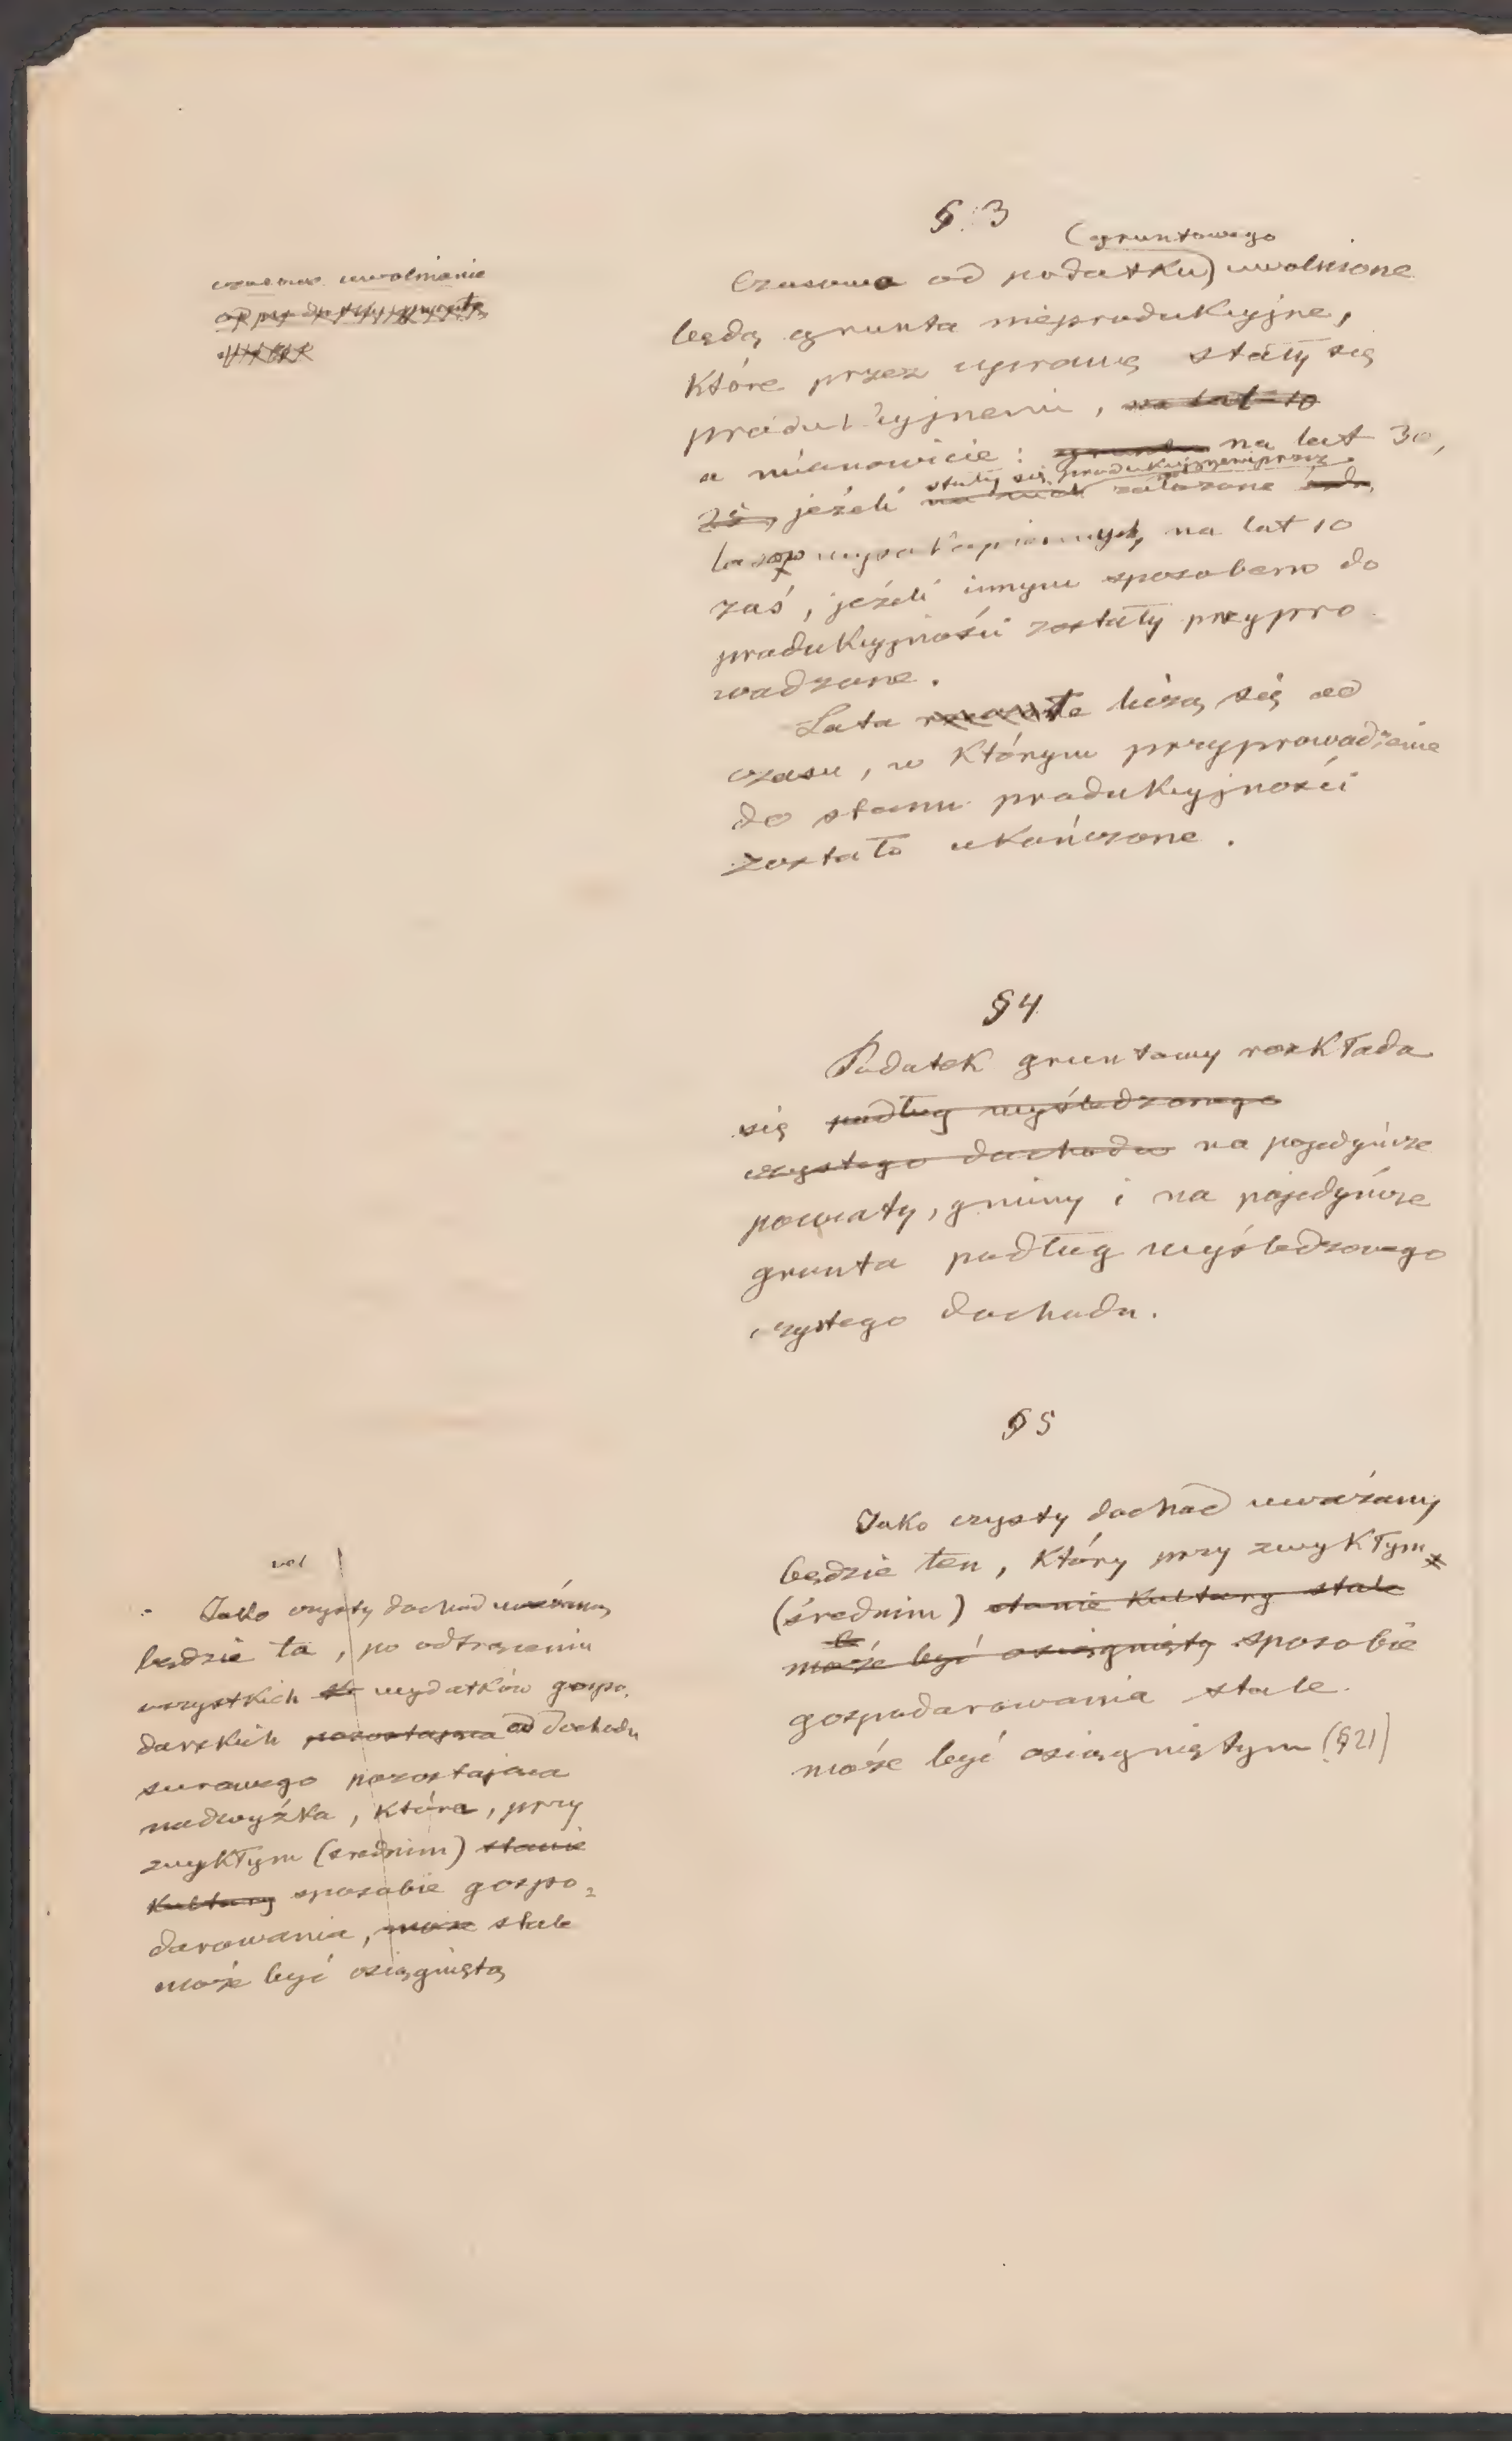 § 3
(gruntowego
Czasowo od podatku) uwolnione
będą grunta nieprodukcyjne,
które przez uprawę stały się
produkcyjnemi, na lat 10
a mianowicie: grunta na lat 30,
stały się produkcyjnemi przez
25, jeżeli na nich założone
lasów wysokopiennych, na lat 10
zaś, jeżeli innym sposobem do
produkcyjności zostały przypro
wadzone.
Lata te liczą się od
czasu, w którym przyprowadzenie
do stanu produkcyjności
zostało ukończone.
czasowe uwolnienie
§ 4
Podatek gruntowy rozkłada
się podług wyśledzonego
czystego dochodu na pojedyńcze
powiaty, gminy i na pojedyńcze
grunta podług wyśledzonego
czystego dochodu.
§ 5
Jako czysty dochód uważany
będzie ten, który przy zwykłym
(średnim) stanie kultury stale
może być osiągnięty sposobie
gospodarowania stale
może być osiągniętym (§ 21)
vel
Jako czysty dochód uważaną
będzie ta, po odtrąceniu
wszystkich wydatków gospo.
darskich pozostająca od dochodu
surowego pozostająca
nadwyżka, która, przy
zwykłym (średnim) stanie
kultury sposobie gospo=
darowania, może stale
może być osiągniętą